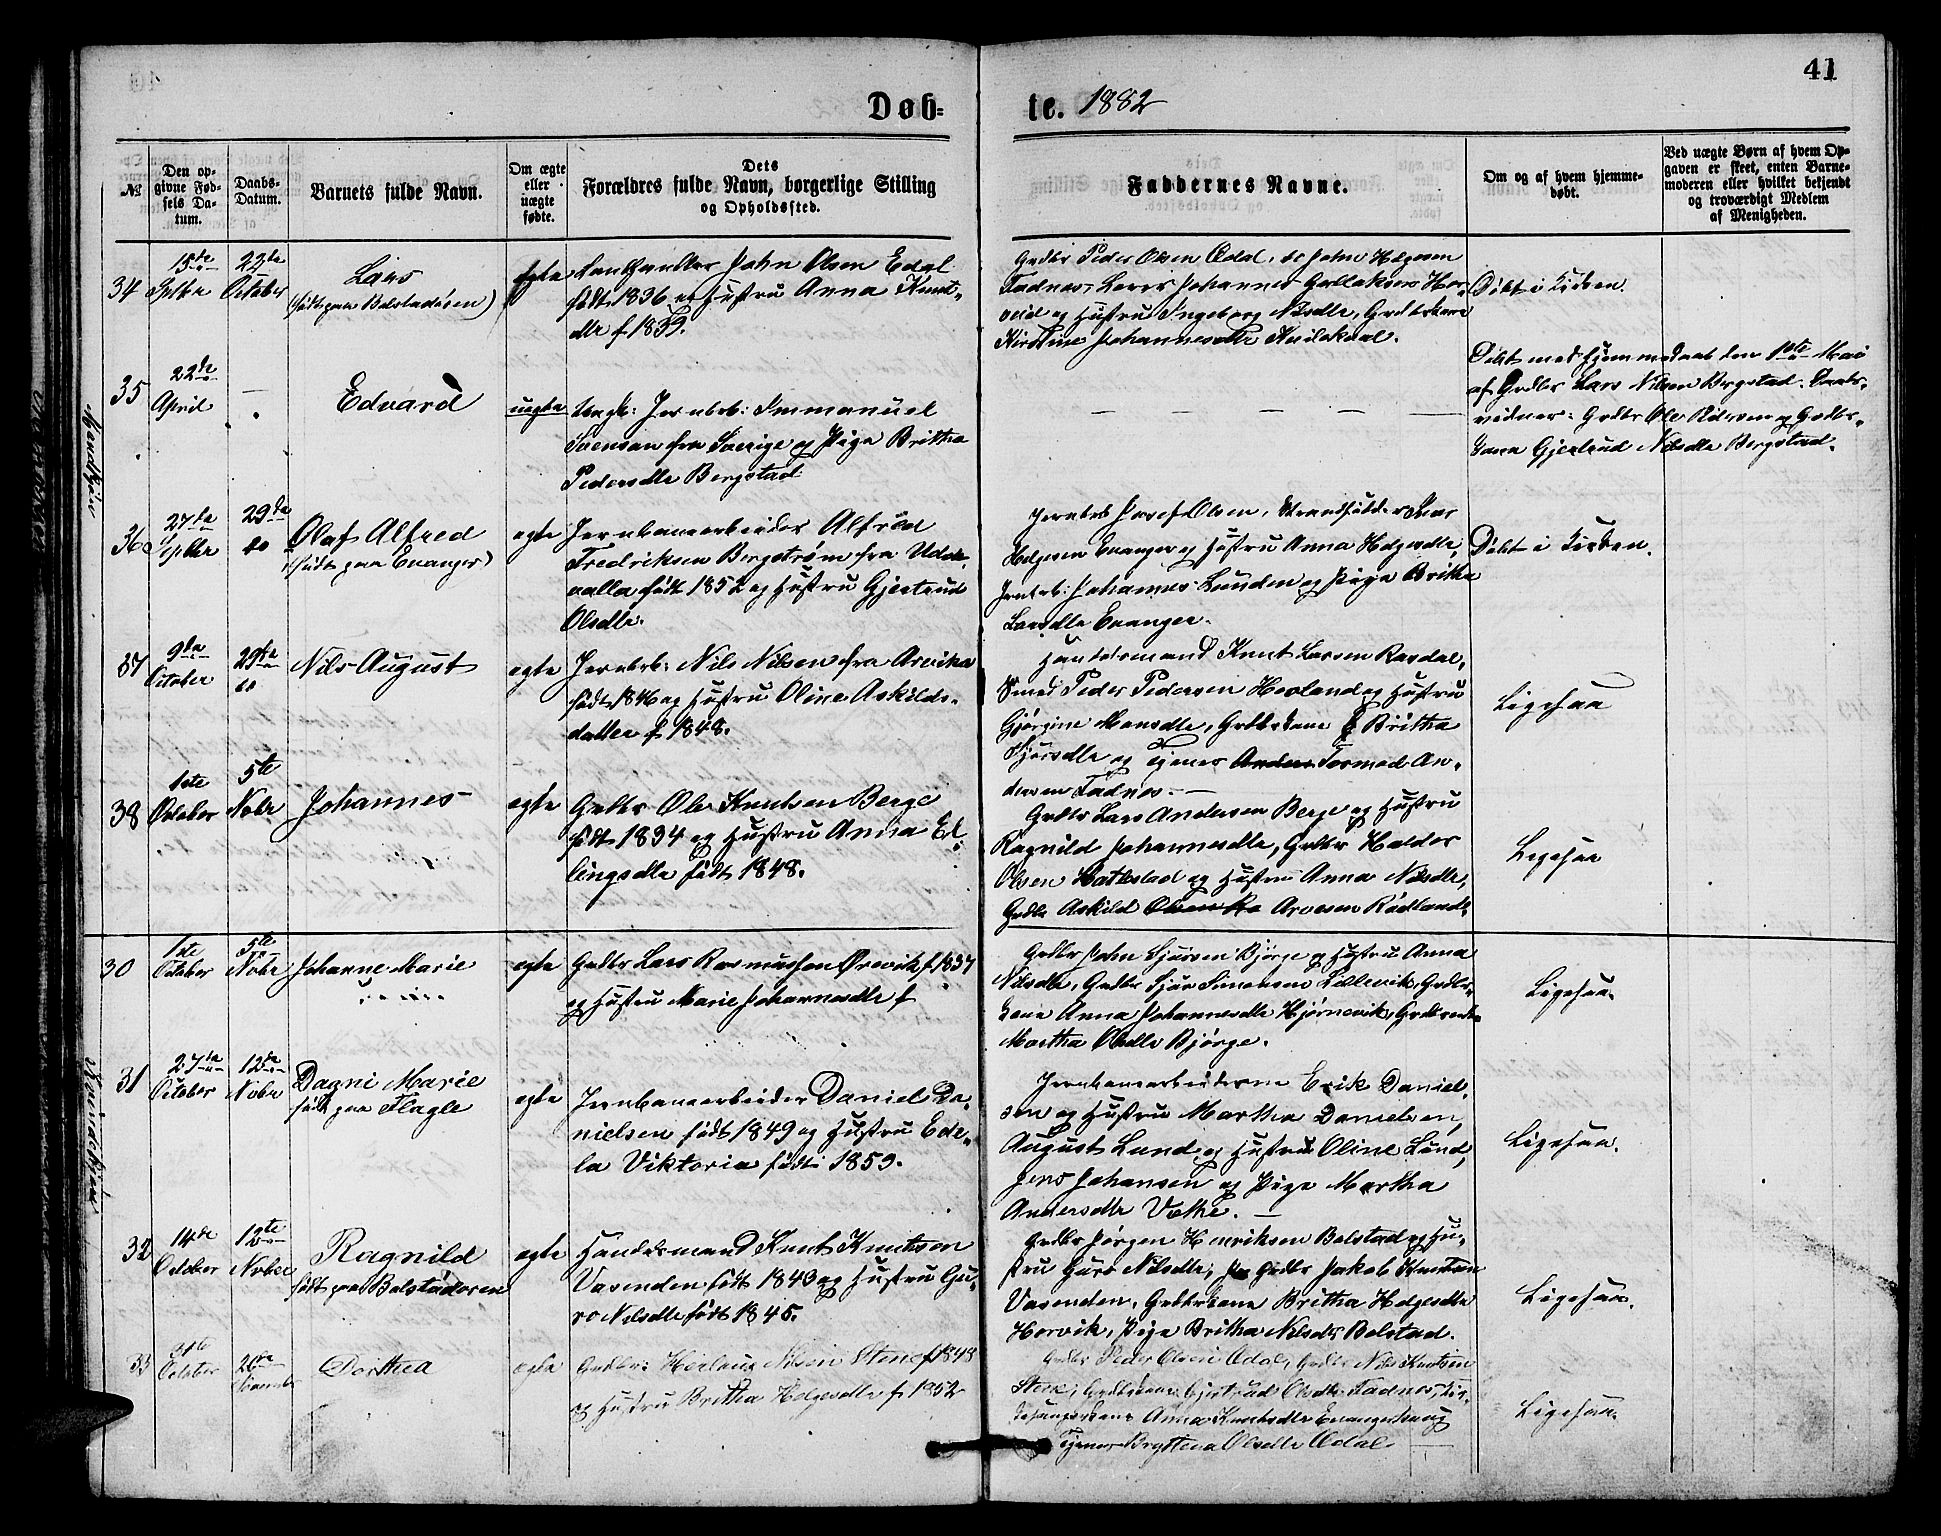 41
Døb-
te. 1882
№
Den op-
givne Fød-
sels Da-
tum.
Daabs-
Datum.
Barnets fulde Navn.
Om ægte
eller
uægte
fødte.
Dets
Forældres fulde Navn, borgerlige Stilling
og Opholdssted.
Faddernes Navne.
Om og af hvem hjemme-
døbt.
Ved uægte Børn af hvem Op-
gaven er skeet, enten Barne-
moderen eller hvilket bekjendt
og troværdigt Medlem
af Menigheden.
Mandkjøn
34
15de
Septbr
22de
October
Lars
(født paa Bolstadøren)
egte
Landhandler John Olsen Edal
født 1836 og Hustru Anna Knuts-
dtr f 1839.
Gdbr Peder Olsen Ødal, do John Helgesen
Fadnes, Lærer Johannes Gullaksen Hor-
veid og Hustru Ingeborg Nilsdtr, Gdbrkone
Kirstine Johannesdtr
Døbt i Kirken.
35
22de
April
—
Edvard
uegte
Ungk: Jernbarb: Immanuel
Svenson fra Sverige og Pige Britha
Pedersdtr Bergstad
— — — — — —
Døbt med Hjemmedaab den 10de Mai
af Gdbr Lars Nilsen Bergstad. Daabs-
vidner: Gdbr Ole Pedersen og Gdbr-
kone Gjertrud Nilsdtr Bergstad.
36
27de
Septbr
29de
do
Olaf Alfred
(født paa Evanger)
egte
Jernbanearbeider Alfred
Fredriksen Bergstrøm fra Udde-
valla født 1852 og Hustru Gjertrud
Olsdtr.
Jernbarb Josef Olsen, Strandsidder
Helgesen Evanger og Hustru Anna Helgesdtr,
Jernbarb: Johannes Lunden og Pige Britha
Larsdtr Evanger.
Døbt i Kirken.
37
9de
October
29de
do
Nils August
egte
Jernbarb: Nils Nilsen fra Arvika
født 1846 og Hustru Oline Askilds-
datter f 1848.
Handelsmand Knut Larsen Rasdal,
Smed Peder Pedersen Hesland og Hustru
Gjørgine Monsdtr, Gdbrkone Britha
Sjursdtr og Tjener Tormod An-
dersen Fadnes. —
Ligesaa
38
1ste
October
5te
Nobr
Johannes
egte
Gdbr Ole Knutsen Berge
født 1834 og Hustru Anna Ed-
lingsdtr født 1848.
Gdbr Lars Andersen Berge og Hustru
Ragnild Johannesdtr, Gdbr Haldor
Olsen Hatlestad og Hustru Anna Nilsdtr,
Gdbr Askild Arvesen Rødland.
Ligesaa
Kvindekjøn
30
1ste
October
5te
Nobr
Johanne Marie
egte
Gdbr Lars Rasmussen Ørevik f 1837
og Hustru Marie Johannesdtr f
Gdbr John Sjursen Bjørge og Hustru Anna
Nilsdtr, Gdbr Sjur Simonsen Lillevik, Gdbr-
kone Anna Johannesdtr Hjørnevik, Gdbrenke
Martha Olsdtr Bjørge.
Ligesaa.
31
27de
October
12de
Nobr
Dagni Marie
født paa Flagle
egte
Jernbanearbeider Daniel Da-
nielsen født 1849 og Hustru Ede-
la Viktoria født 1859.
Jernbanearbeiderne Erik Daniel-
sen og Hustru Martha Danielsen,
August Lund og Hustru Oline Lund,
Jens Johansen og Pige Martha
Andersdtr Væthe. —
Ligesaa.
32
14de
October
12te
Nober
Ragnild
født paa Bolstadøren
egte
Handelsmand Knut Knutsen
Vasenden født 1843 og Hustru Gu-
ro Nilsdtr født 1845.
Gdbr Jørgen Henriksen Bolstad og Hu-
stru Guro Nilsdtr, Gdbr Jakob Knutsen
Vasenden, Gdbrkone Britha Helgesdtr
Horvik, Pige Britha Nilsdtr Bolstad.
Ligesaa.
33
31te
October
26de
November
Dorthea
egte
Gdbr: Nilsen Stene f 1848
og Hustru Britha Helgesdtr f 1852
Gdbr Peder Olsen Ødal, Gdbr Nils Knutsen
Stene, Gdbrkone Gjertrud Olsdtr Fadnes, Kir-
kesangerkone Anna Knutsdtr Evangerhaug
Tjener Olsdtr Ødal. —
Ligesaa.